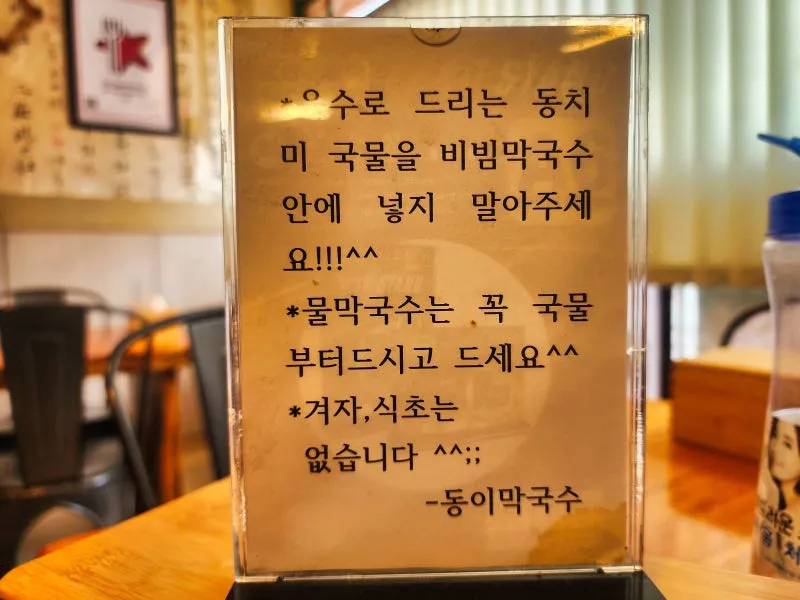 *육수로 드리는 동치
미 국물을 비빔막국수
안에 넣지 말아주세
요!!!^^
*물막국수는 꼭 국물
부터드시고 드세요^^
*겨자,식초는
없습니다 ^^;;
-동이막국수